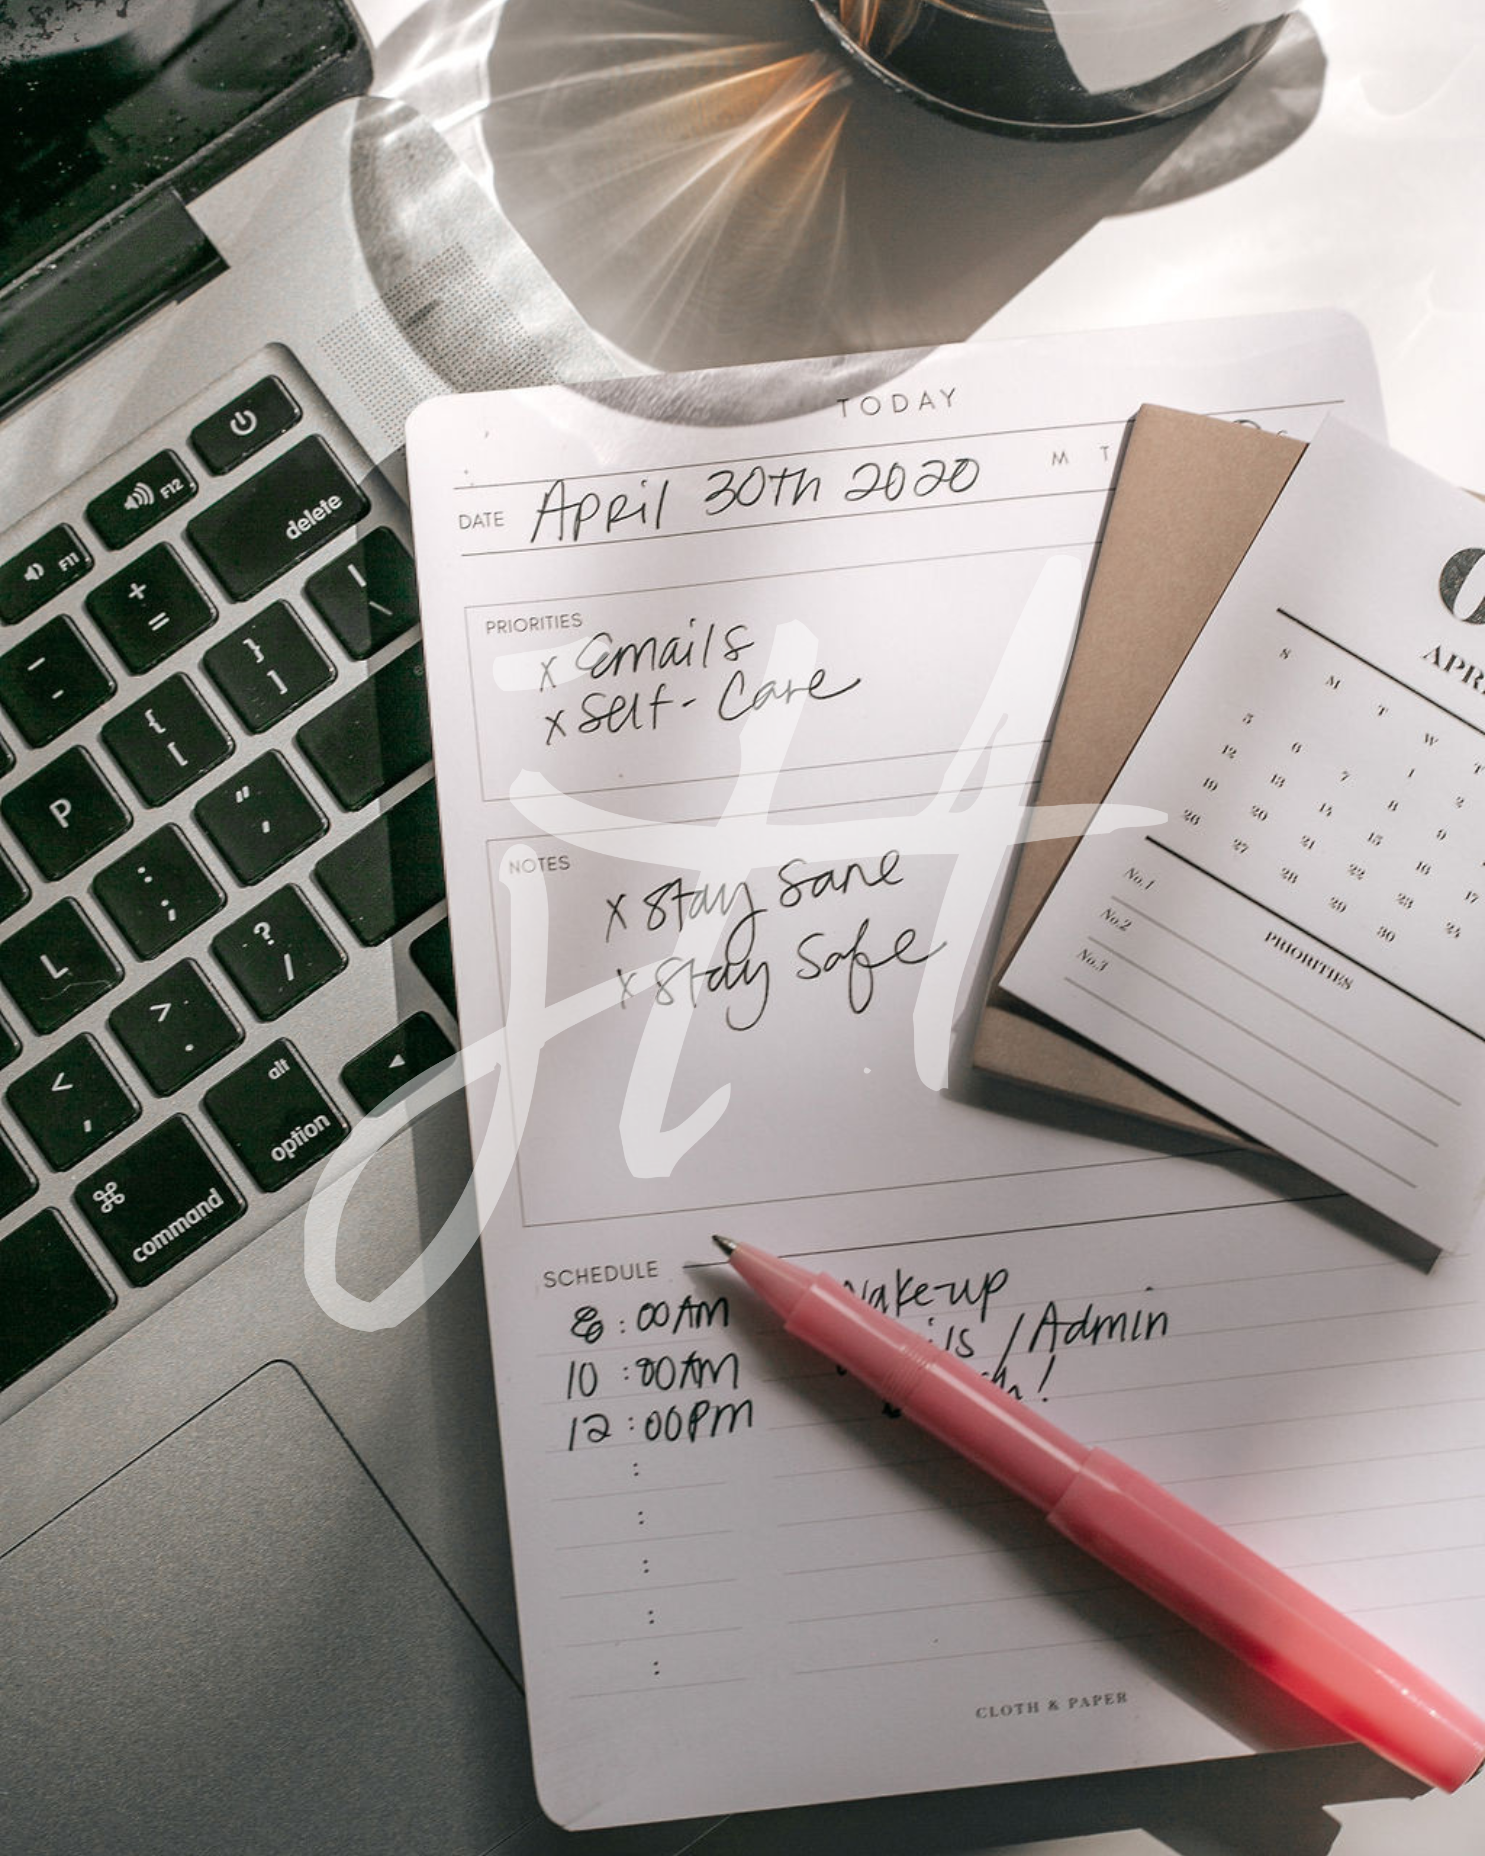 TODAY
M T
DATE April 30th 2020
PRIORITIES
x Emails
x Self-Care
NOTES
x Stay Sane
x Stay Safe
SCHEDULE
8:00AM Wake-up
10:00AM /Admin
12:00PM
:
:
:
:
:
CLOTH & PAPER
S M T W T
1 2
5 6 7 8 9
12 13 14 15 16 17
19 20 21 22 23 24
26 27 28 29 30
PRIORITIES
No.1
No.2
No.3
F11
F12
delete
+
=
-
}
]
|
\
{
[
P
"
,
:
;
L
?
/
>
.
<
,
alt
option
⌘
command
JH